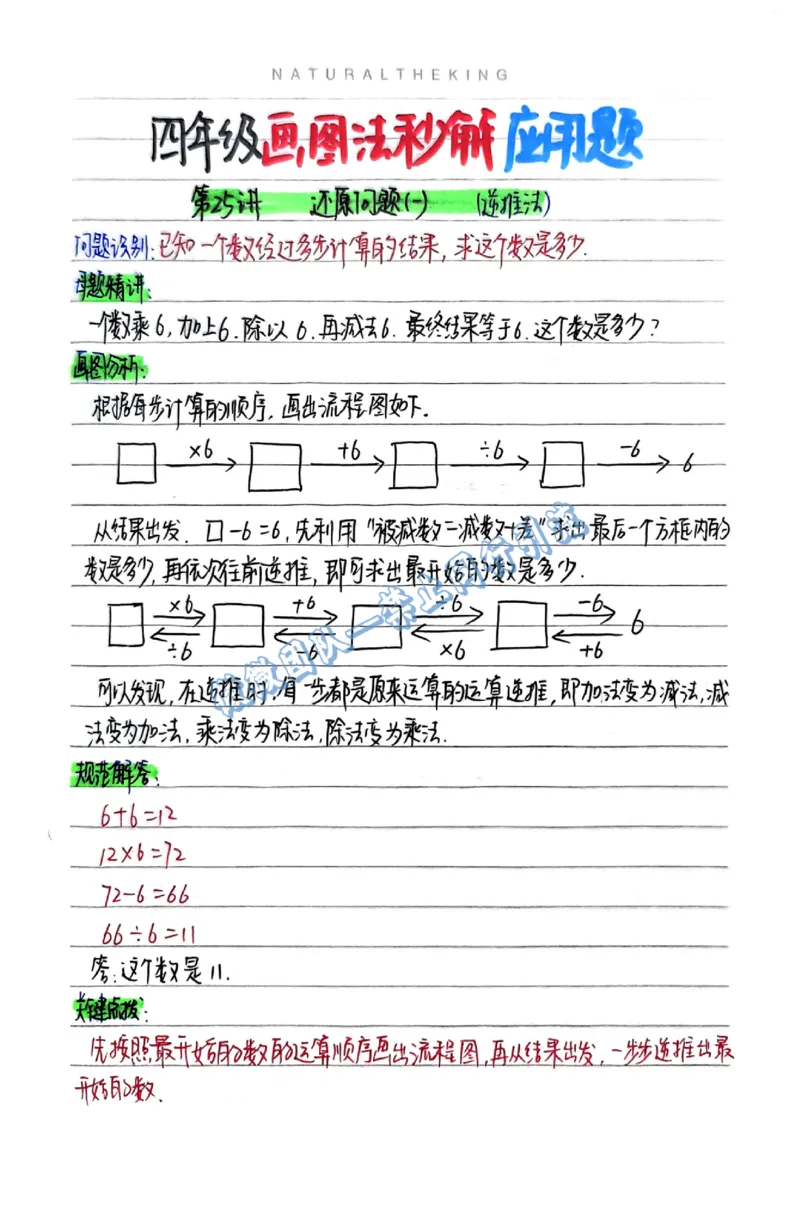 NATURALTHEKING
四年级画图法秒解应用题
第25讲 还原问题(一) (逆推法)
问题识别:已知一个数经过多步计算的结果,求这个数是多少.
母题精讲:
一个数乘6,加上6.除以6.再减去6.最终结果等于6.这个数是多少?
画图分析:
根据每步计算的顺序,画出流程图如下.
×6 +6 ÷6 -6 6
从结果出发.口-6=6,先利用"被减数=减数+差"求出最后一个方框内的
数是多少,再依次往前逆推,即可求出最开始的数是多少.
×6 +6 ÷6 -6 6
÷6 -6 ×6 +6
可以发现,在逆推时,每一步都是原来运算的运算逆推,即加法变为减法,减
法变为加法,乘法变为除法,除法变为乘法.
规范解答:
6+6=12
12×6=72
72-6=66
66÷6=11
答:这个数是11.
关键点拨:
先按照最开始的数的运算顺序画出流程图,再从结果出发,一步步逆推出最
开始的数.